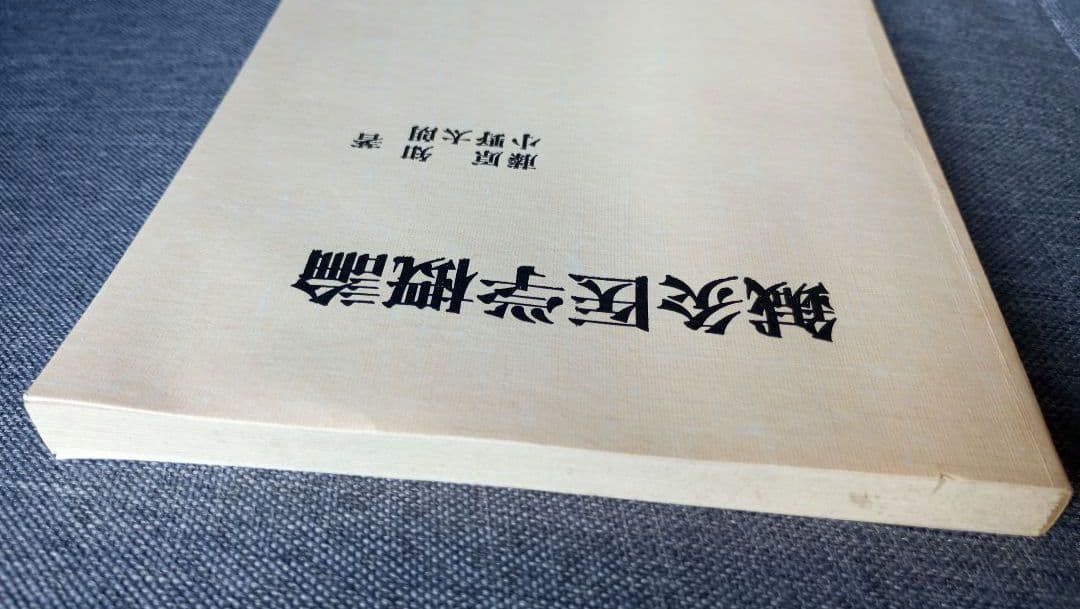 鍼灸医学概論
藤原 知
小野太朗
著